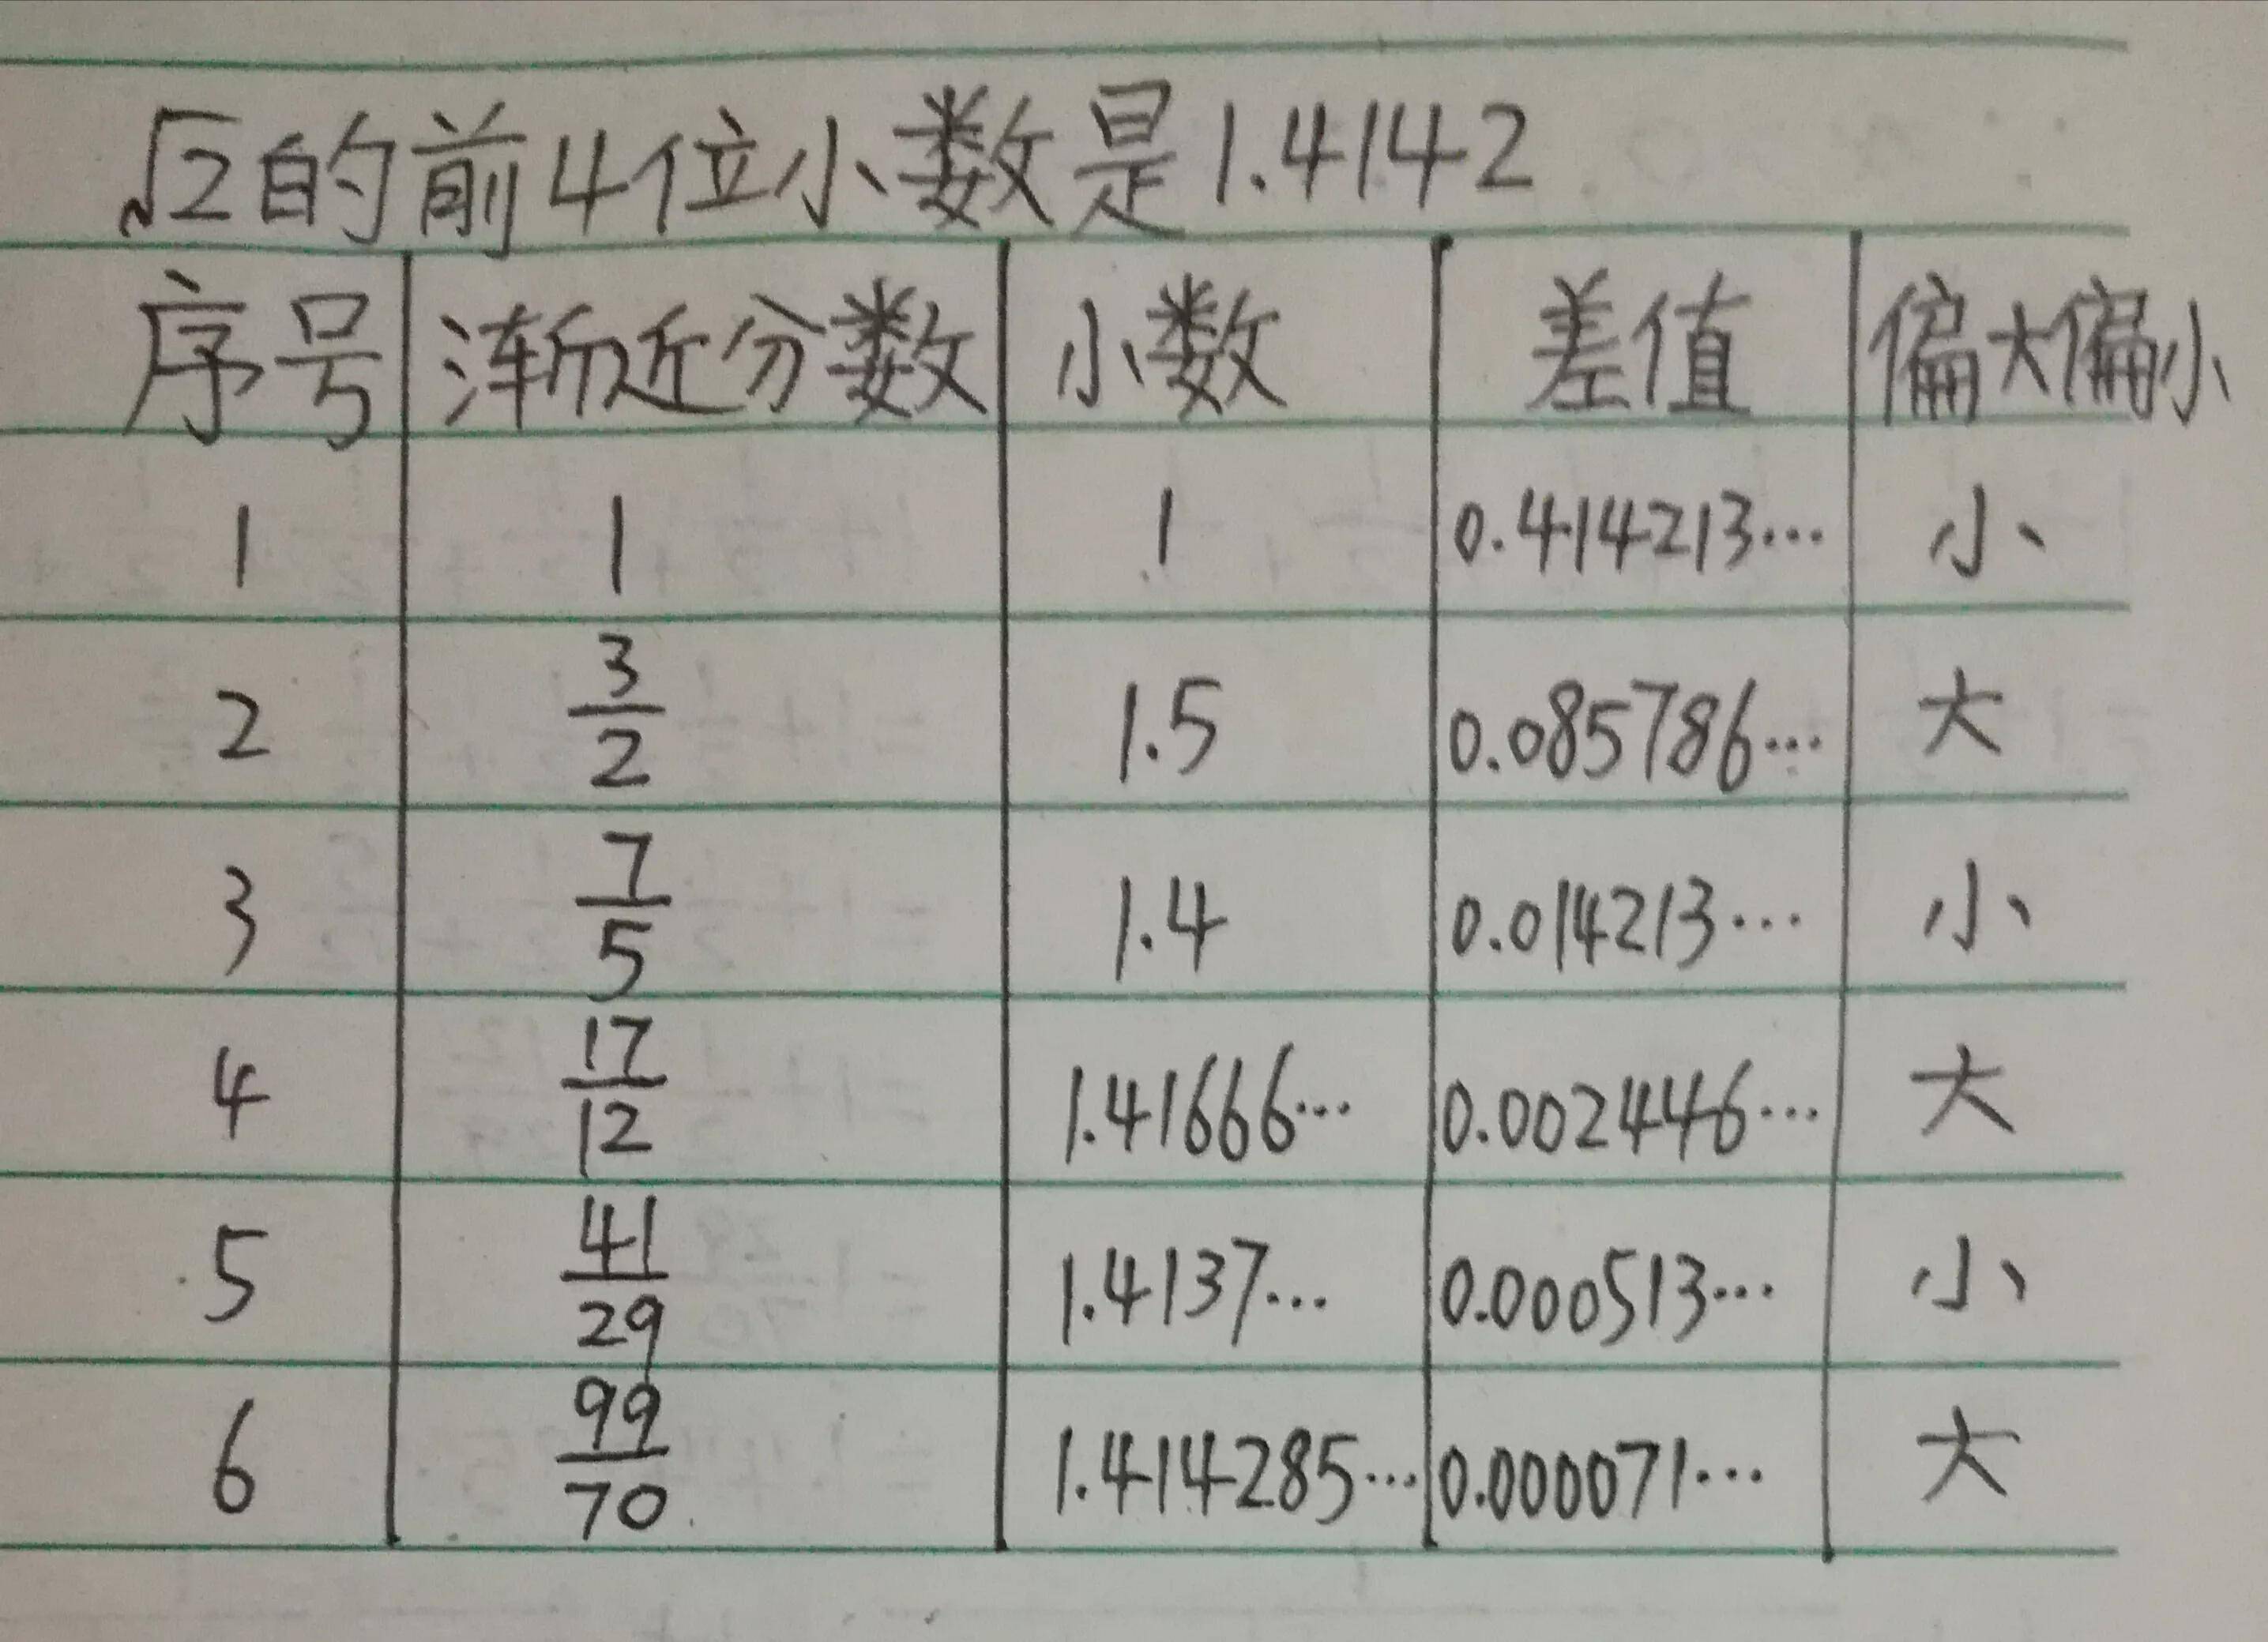 √2的前4位小数是1.4142
序号 渐近分数 小数 差值 偏大偏小
1 1 1 0.414213… 小
2 3/2 1.5 0.085786… 大
3 7/5 1.4 0.014213… 小
4 17/12 1.41666… 0.002446… 大
5 41/29 1.4137… 0.000513… 小
6 99/70 1.414285… 0.000071… 大